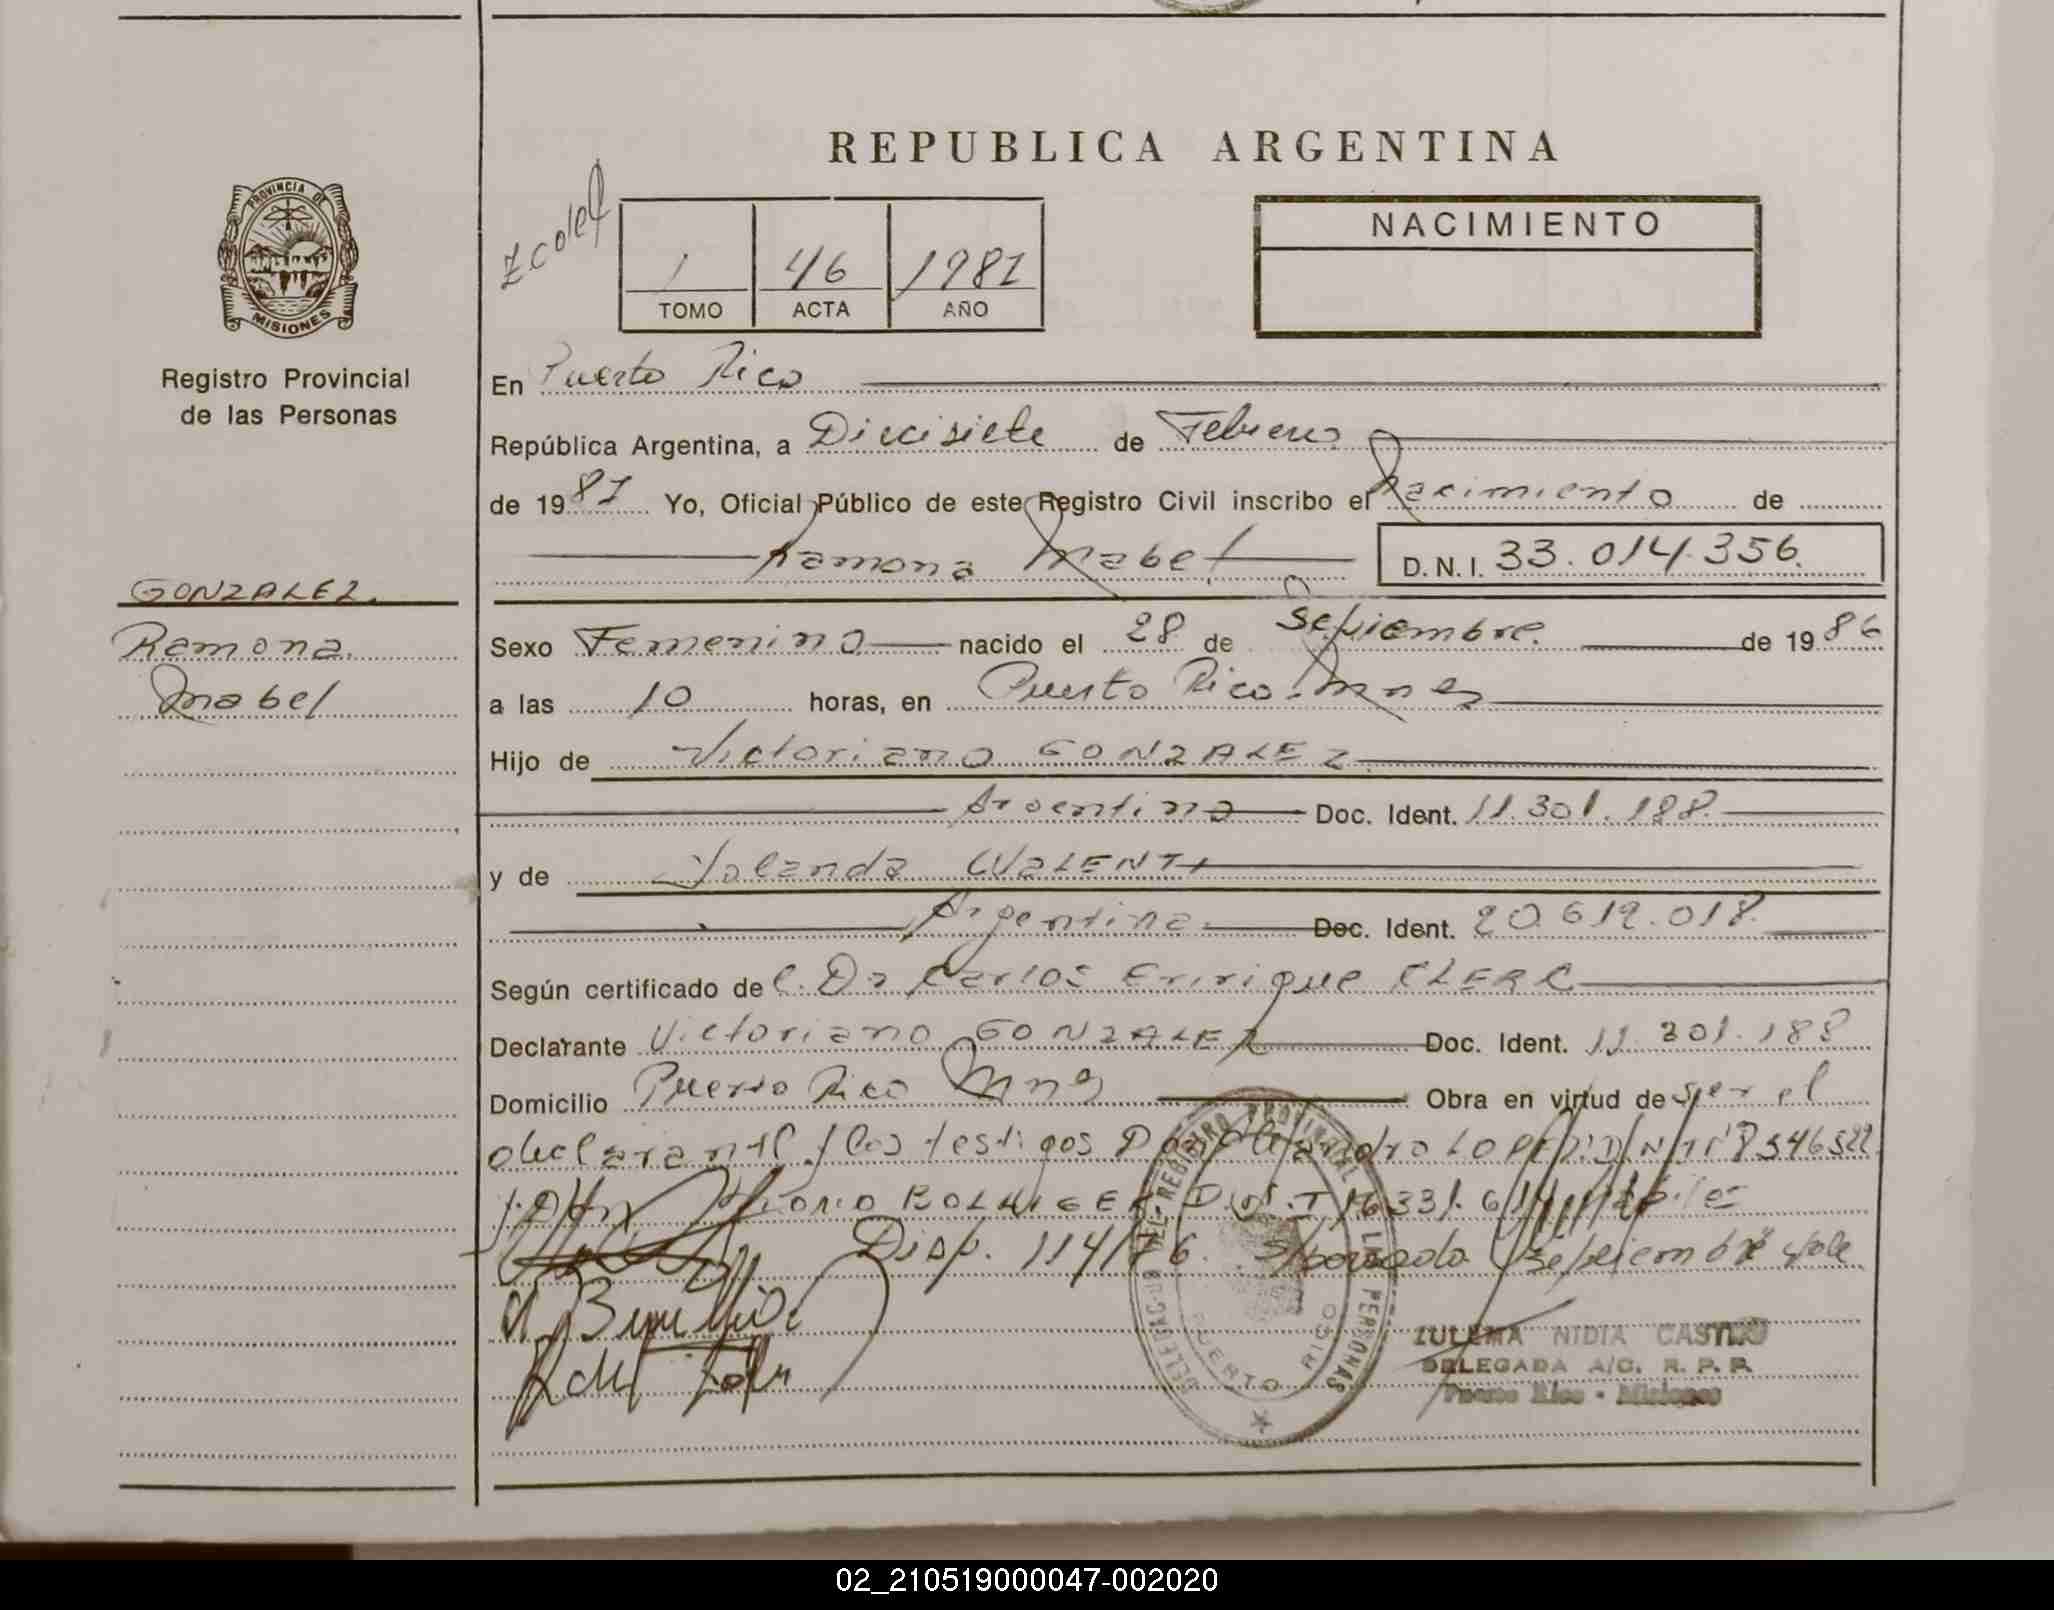 REPUBLICA ARGENTINA
PROVINCIA DE
MISIONES
Registro Provincial
de las Personas
1 46 1987
TOMO ACTA AÑO
NACIMIENTO
En Puerto Rico
República Argentina, a Diecisiete de Febrero
de 1987 Yo, Oficial Público de este Registro Civil inscribo el Nacimiento de
Ramona Mabel D.N.I. 33.014.356.
GONZALEZ.
Ramona
Mabel
Sexo Femenino nacido el 28 de Septiembre de 1986
a las 10 horas, en Puerto Rico Mnes
Hijo de Victoriano GONZALEZ
Argentino Doc. Ident. 11.301.188
y de Yolanda WALENTI
Argentina Doc. Ident. 20.612.018
Según certificado de Dr Carlos Enrique CLERC
Declarante Victoriano GONZALEZ Doc. Ident. 11.301.188
Domicilio Puerto Rico Mnes Obra en virtud de ser el
declarante y los testigos LOPEZ D.N.I 8346522
D.N.I
Disp. 114/76. Septiembre vale
DELEGACION DEL REGISTRO PROVINCIAL DE LAS PERSONAS
PUERTO RICO
ZULEMA NIDIA CASTRO
DELEGADA A/C. R. P. P.
Puerto Rico - Misiones
02_210519000047-002020